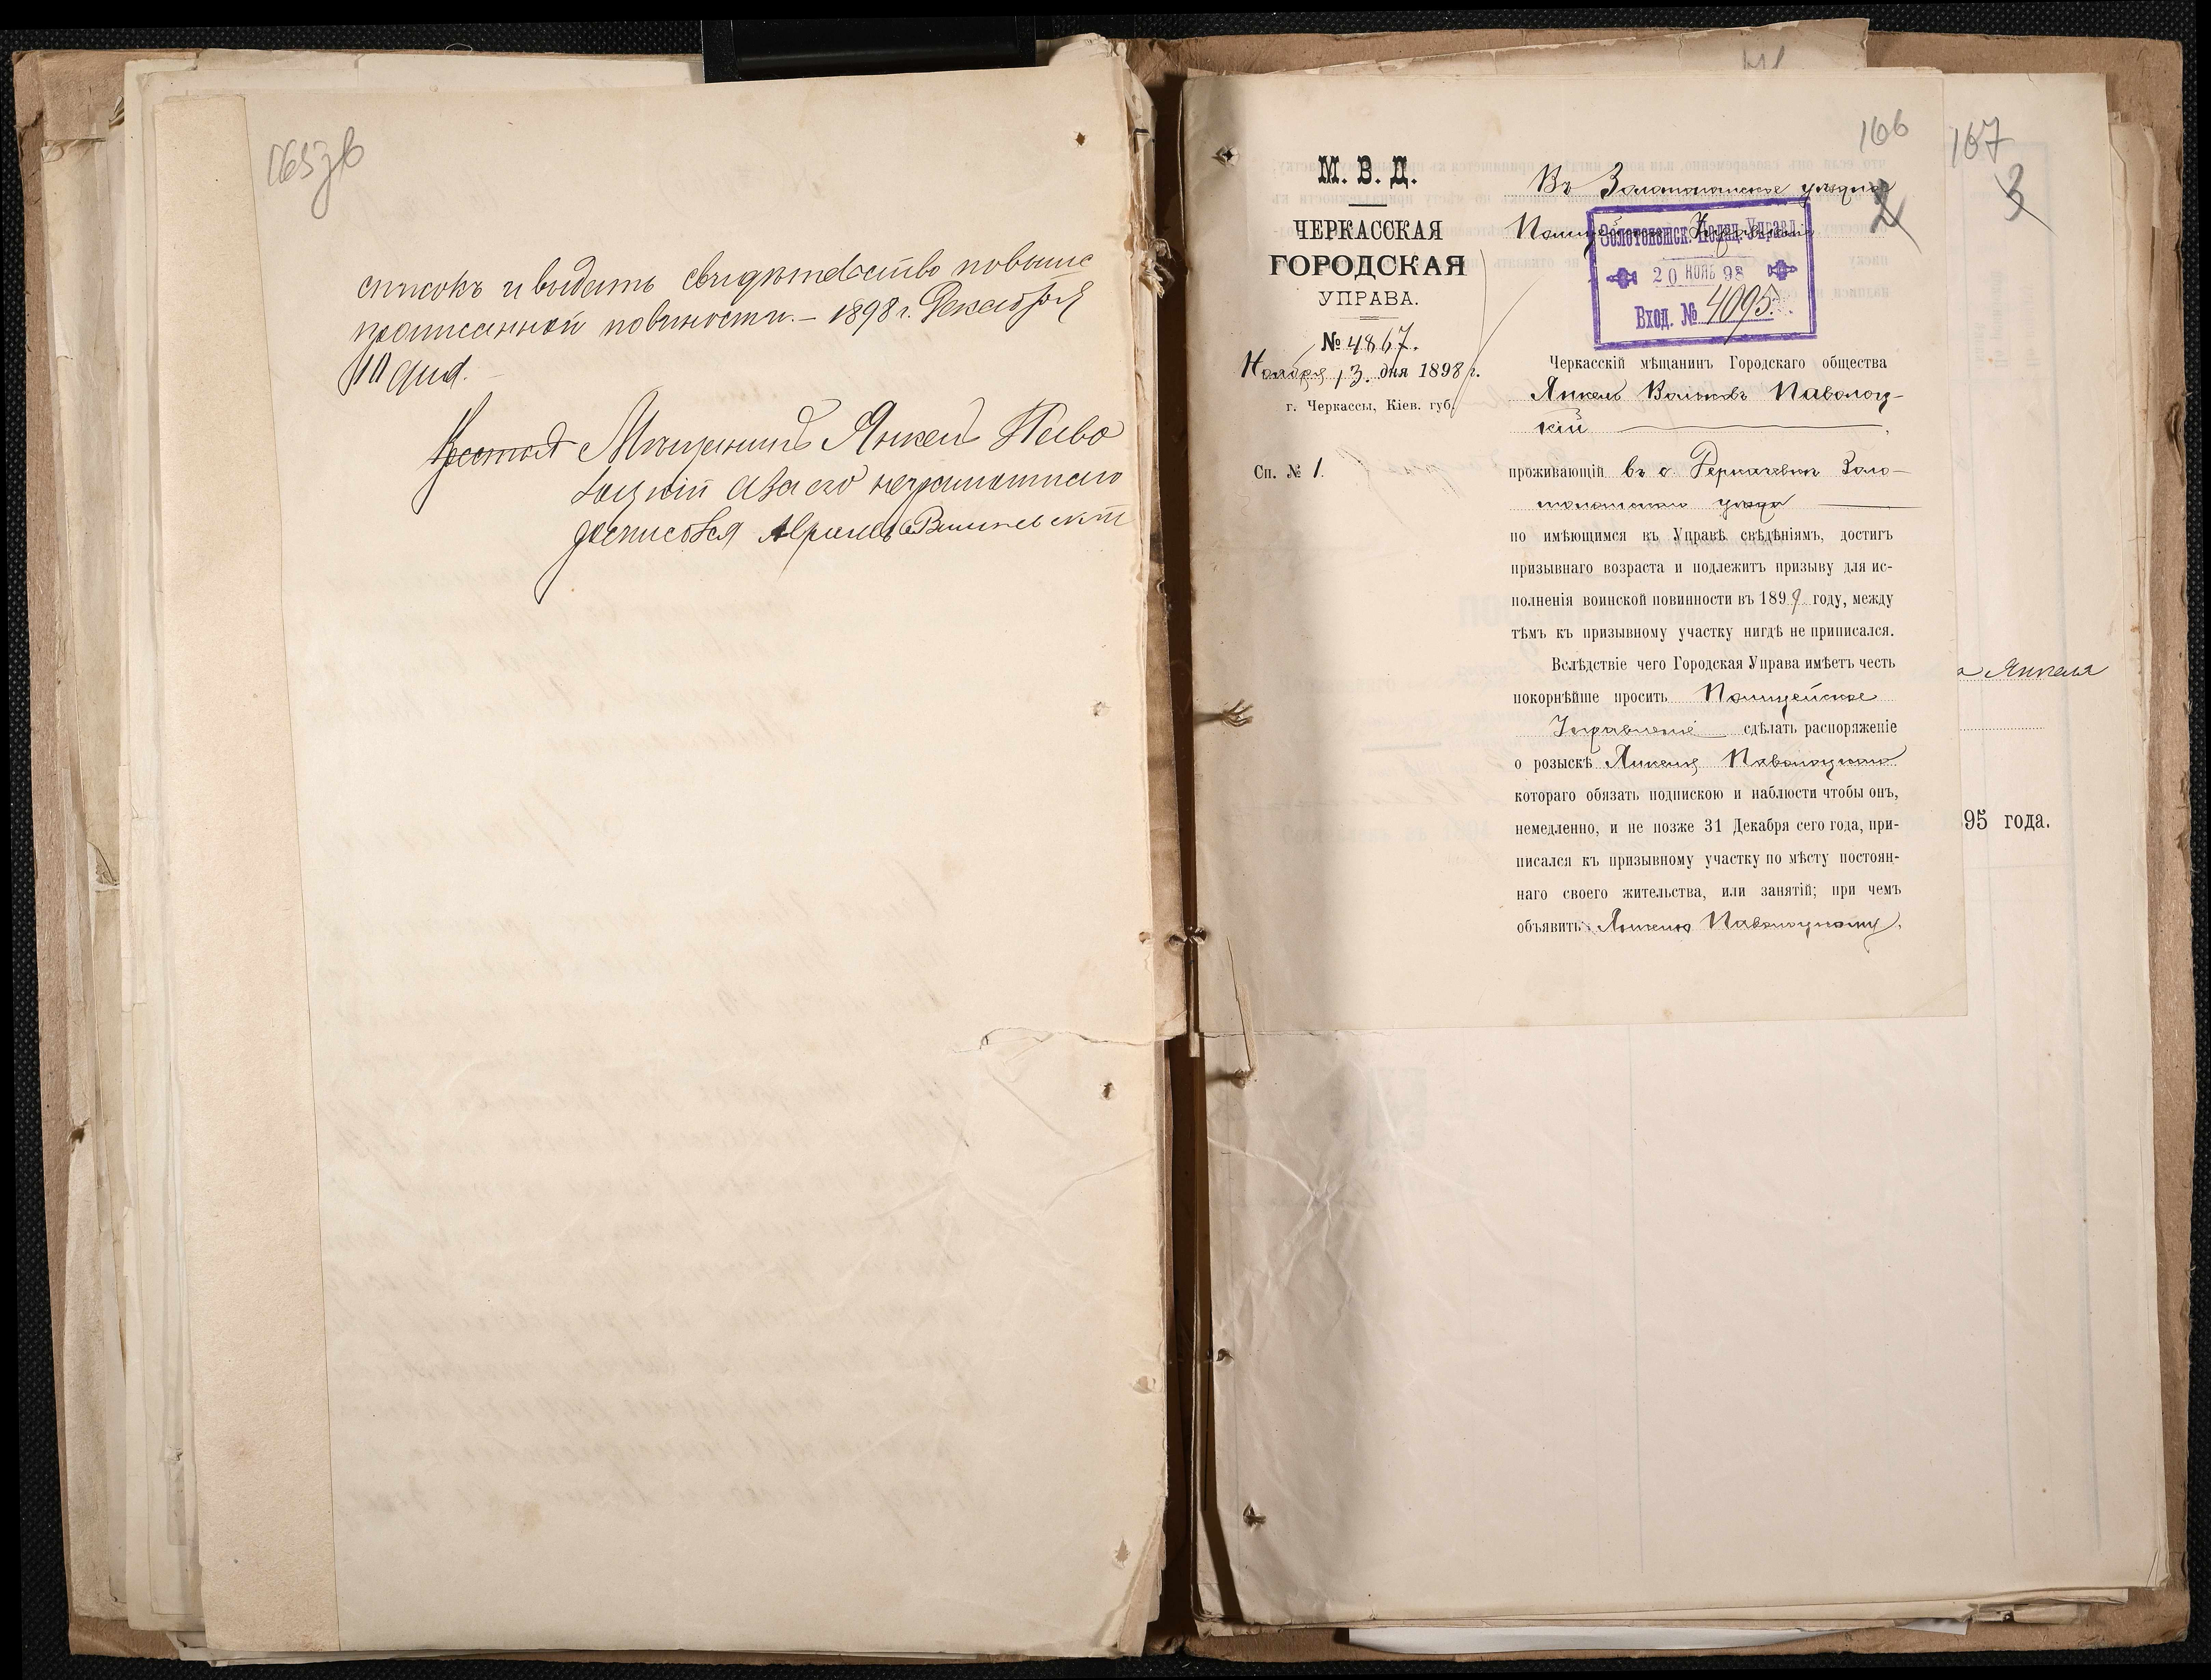 165 зв
списокъ и выдать свидѣтельство повыше
прописанной повинности. – 1898 г. Декабря
10 дня. –
Мещанинъ Янкель Паво
лоцкій а за его неграмотного
росписался
166
М. В. Д.
ЧЕРКАССКАЯ
ГОРОДСКАЯ
УПРАВА.
№ 4867.
Ноября 13 дня 1898 г.
г. Черкассы, Кіев. губ.
Сп. № 1.
Въ Золотоношское уѣздное
Полицейское Управленіе
2
Золотоношск. Полиц. Управл.
20 НОЯБ 98
Вход. № 4095.
Черкасскій мѣщанинъ Городскаго общества
Янкель Волковъ Паволоц-
кій
проживающій въ с. Деркачевкѣ Золо-
тоношскаго уѣзда
по имѣющимся въ Управѣ свѣдѣніямъ, достигъ
призывнаго возраста и подлежитъ призыву для ис-
полненія воинской повинности въ 1899 году, между
тѣмъ къ призывному участку нигдѣ не приписался.
Вслѣдствіе чего Городская Управа имѣетъ честь
покорнѣйше просить Полицейское
Управленіе сдѣлать распоряженіе
о розыскѣ Янкеля Паволоцкаго
котораго обязать подпискою и наблюсти чтобы онъ,
немедленно, и не позже 31 Декабря сего года, при-
писался къ призывному участку по мѣсту постоян-
наго своего жительства, или занятій; при чемъ
объявить Янкелю Паволоцкому,
167
3
а Янкеля
95 года.